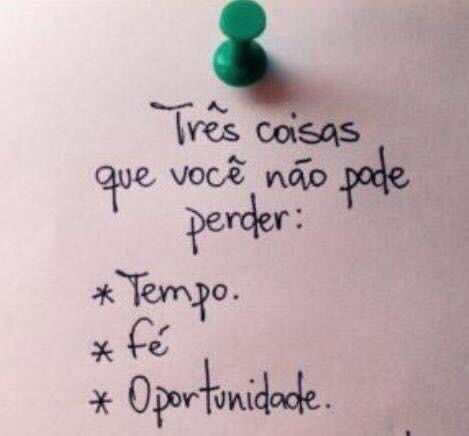 Três coisas
que você não pode
perder:
* Tempo.
* fé
* Oportunidade.